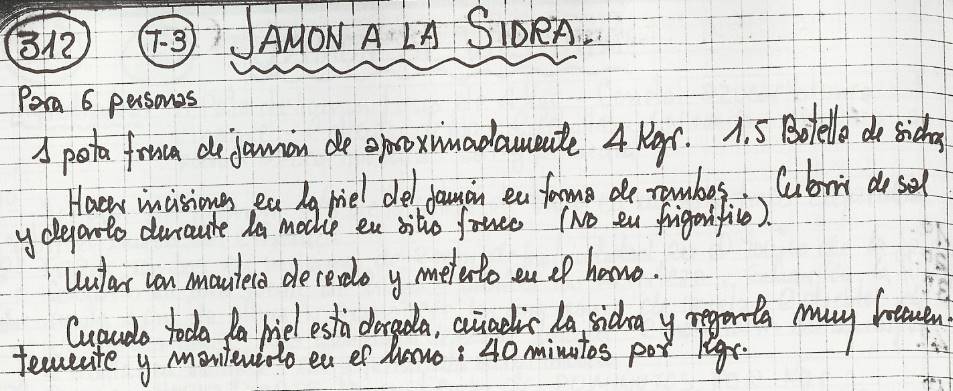 312 T-3 JAMON A LA SIDRA.
Para 6 personas
1 pata fresca de jamón de aproximadamente 4 Kgr. 1,5 Botella de sidra
Hacer incisiones en la piel del jamón en forma de rombos. Cubrir de sal
y dejarlo durante la noche en sitio fresco (No en frigorífico).
Untar con manteca de cerdo y meterlo en el horno.
Cuando toda la piel está dorada, añadir la sidra y regarla muy frecuen-
temente y mantenerlo en el horno: 40 minutos por Kgr.